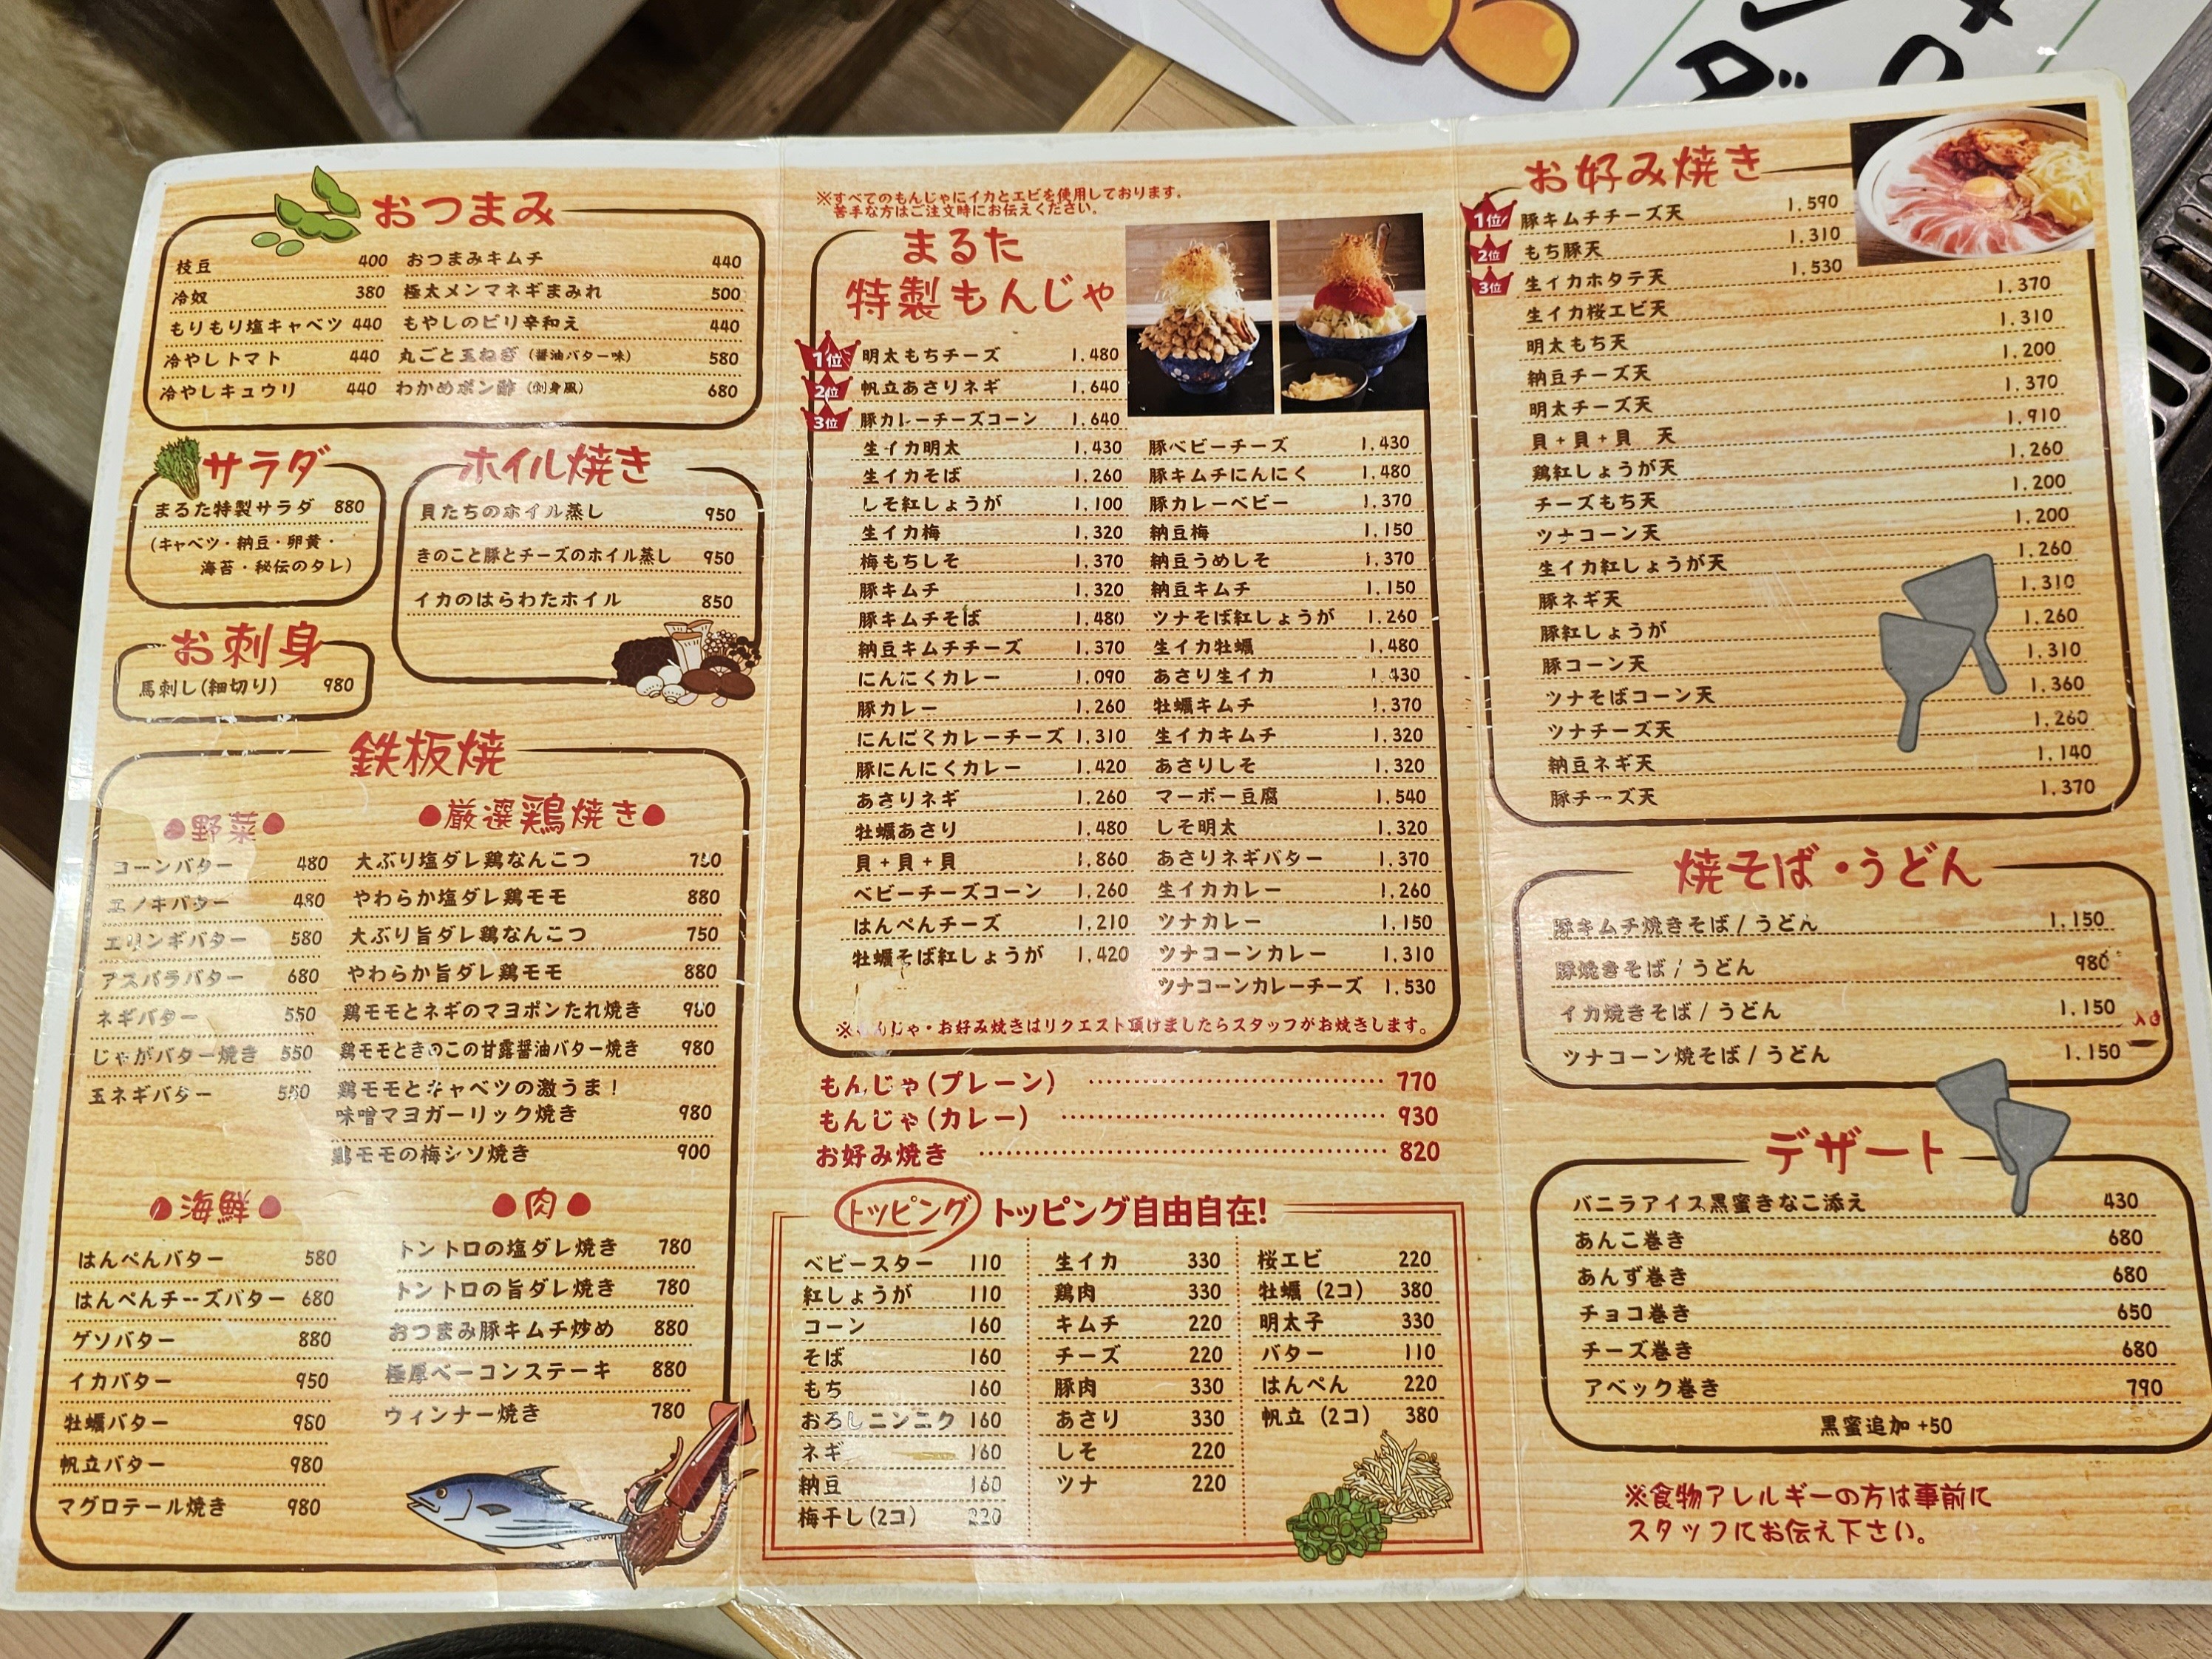 おつまみ
枝豆 400 おつまみキムチ 440
冷奴 380 極太メンマネギまみれ 500
もりもり塩キャベツ 440 もやしのピリ辛和え 440
冷やしトマト 440 丸ごと玉ねぎ(醤油バター味) 580
冷やしキュウリ 440 わかめポン酢(刺身風) 680
サラダ
まるた特製サラダ 880
(キャベツ・納豆・卵黄・
海苔・秘伝のタレ)
ホイル焼き
貝たちのホイル蒸し 950
きのこと豚とチーズのホイル蒸し 950
イカのはらわたホイル 850
お刺身
馬刺し(細切り) 980
鉄板焼
●野菜●
コーンバター 480
エノキバター 480
エリンギバター 580
アスパラバター 680
ネギバター 550
じゃがバター焼き 550
玉ネギバター
●厳選鶏焼き●
大ぶり塩ダレ鶏なんこつ
やわらか塩ダレ鶏モモ 880
大ぶり旨ダレ鶏なんこつ 750
やわらか旨ダレ鶏モモ 880
鶏モモとネギのマヨポンたれ焼き 980
鶏モモときのこの甘露醤油バター焼き 980
鶏モモとキャベツの激うま!
味噌マヨガーリック焼き 980
鶏モモの梅シソ焼き 900
●海鮮●
はんぺんバター 580
はんぺんチーズバター 680
ゲソバター 880
イカバター 950
牡蠣バター 980
帆立バター 980
マグロテール焼き 980
●肉●
トントロの塩ダレ焼き 780
トントロの旨ダレ焼き 780
おつまみ豚キムチ炒め 880
極厚ベーコンステーキ 880
ウィンナー焼き 780
※すべてのもんじゃにイカとエビを使用しております。
苦手な方はご注文時にお伝えください。
まるた
特製もんじゃ
1位 明太もちチーズ 1,480
2位 帆立あさりネギ 1,640
3位 豚カレーチーズコーン 1,640
生イカ明太 1,430 豚ベビーチーズ 1,430
生イカそば 1,260 豚キムチにんにく 1,480
しそ紅しょうが 1,100 豚カレーベビー 1,370
生イカ梅 1,320 納豆梅 1,150
梅もちしそ 1,370 納豆うめしそ 1,370
豚キムチ 1,320 納豆キムチ 1,150
豚キムチそば 1,480 ツナそば紅しょうが 1,260
納豆キムチチーズ 1,370 生イカ牡蠣 1,480
にんにくカレー 1,090 あさり生イカ 1,430
豚カレー 1,260 牡蠣キムチ 1,370
にんにくカレーチーズ 1,310 生イカキムチ 1,320
豚にんにくカレー 1,420 あさりしそ 1,320
あさりネギ 1,260 マーボー豆腐 1,540
牡蠣あさり 1,480 しそ明太 1,320
貝+貝+貝 1,860 あさりネギバター 1,370
ベビーチーズコーン 1,260 生イカカレー 1,260
はんぺんチーズ 1,210 ツナカレー 1,150
牡蠣そば紅しょうが 1,420 ツナコーンカレー 1,310
ツナコーンカレーチーズ 1,530
※もんじゃ・お好み焼きはリクエスト頂けましたらスタッフがお焼きします。
もんじゃ(プレーン) 770
もんじゃ(カレー) 930
お好み焼き 820
トッピング トッピング自由自在!
ベビースター 110 生イカ 330 桜エビ 220
紅しょうが 110 鶏肉 330 牡蠣(2コ) 380
コーン 160 キムチ 220 明太子 330
そば 160 チーズ 220 バター 110
もち 160 豚肉 330 はんぺん 220
おろしニンニク 160 あさり 330 帆立(2コ) 380
ネギ 160 しそ 220
納豆 160 ツナ 220
梅干し(2コ) 220
お好み焼き
1位 豚キムチチーズ天 1,590
2位 もち豚天 1,310
3位 生イカホタテ天 1,530
生イカ桜エビ天 1,370
明太もち天 1,310
納豆チーズ天 1,200
明太チーズ天 1,370
貝+貝+貝 天 1,910
鶏紅しょうが天 1,260
チーズもち天 1,200
ツナコーン天 1,200
生イカ紅しょうが天 1,260
豚ネギ天 1,310
豚紅しょうが 1,260
豚コーン天 1,310
ツナそばコーン天 1,360
ツナチーズ天 1,260
納豆ネギ天 1,140
豚チーズ天 1,370
焼そば・うどん
豚キムチ焼きそば/うどん 1,150
豚焼きそば/うどん 980
イカ焼きそば/うどん 1,150
ツナコーン焼そば/うどん 1,150
デザート
バニラアイス黒蜜きなこ添え 430
あんこ巻き 680
あんず巻き 680
チョコ巻き 650
チーズ巻き 680
アベック巻き 790
黒蜜追加 +50
※食物アレルギーの方は事前に
スタッフにお伝え下さい。